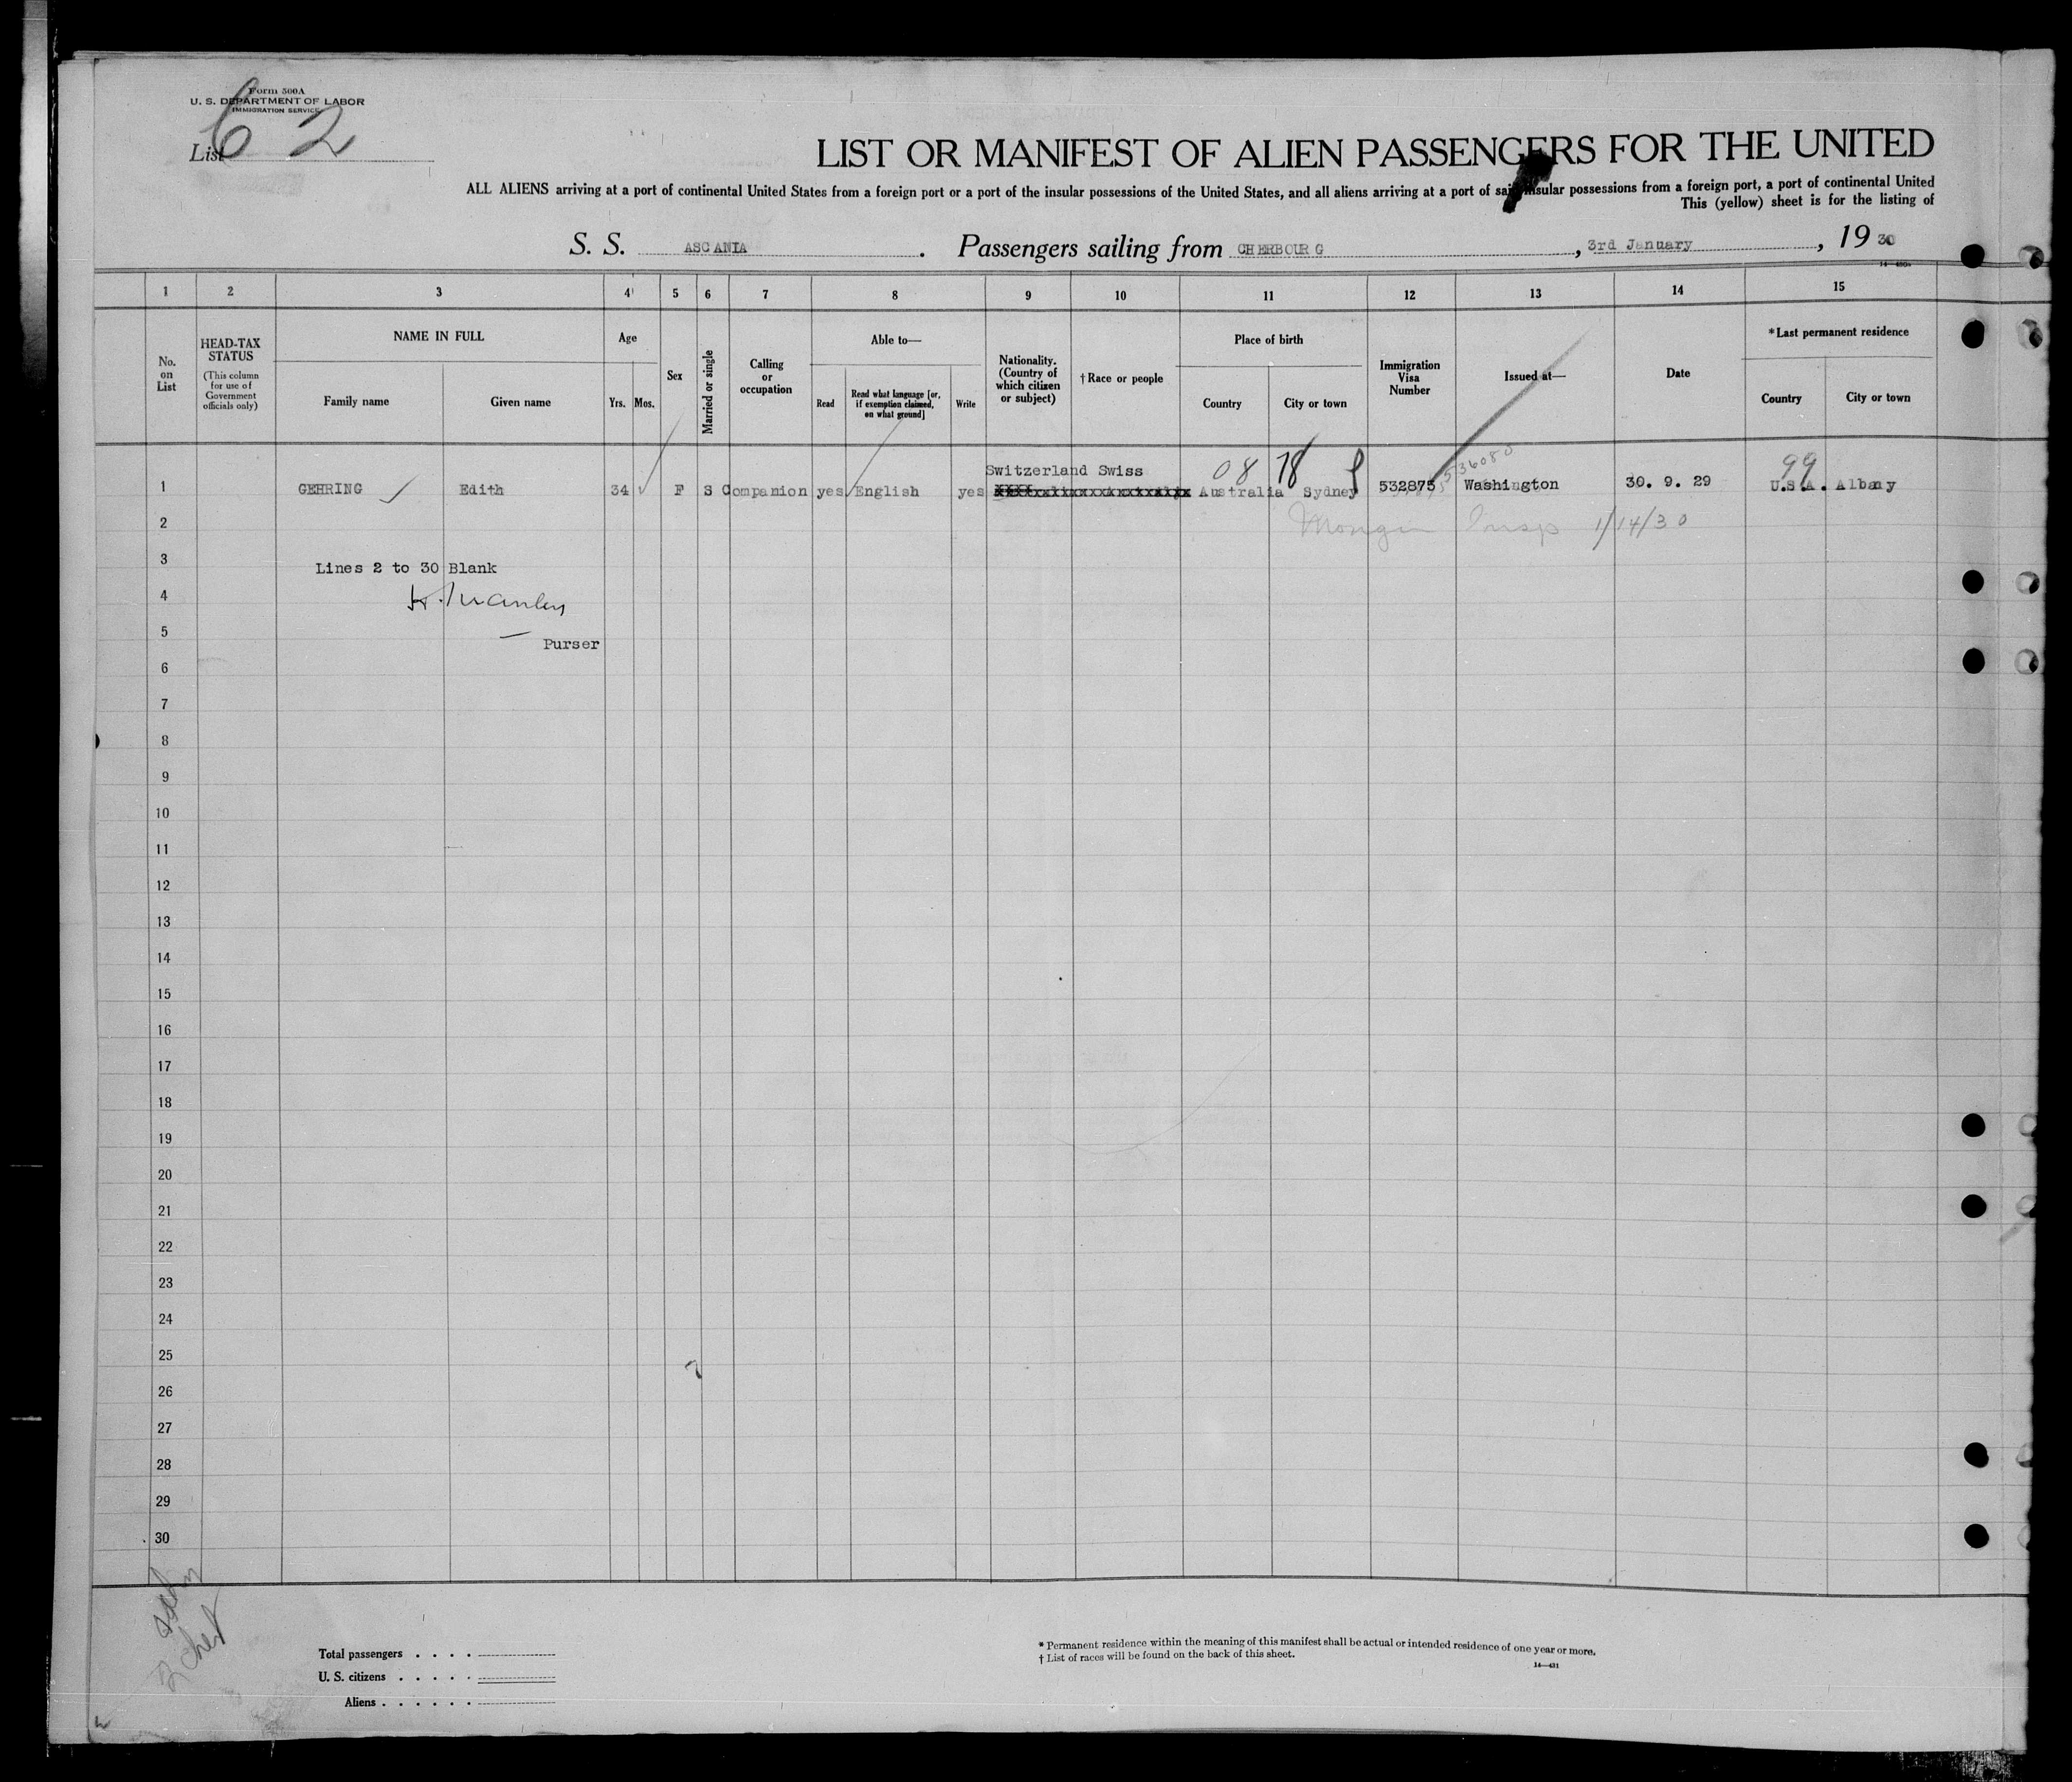 Form 500A
U. S. DEPARTMENT OF LABOR
IMMIGRATION SERVICE
List 62
LIST OR MANIFEST OF ALIEN PASSENGERS FOR THE UNITED
ALL ALIENS arriving at a port of continental United States from a foreign port or a port of the insular possessions of the United States, and all aliens arriving at a port of said insular possessions from a foreign port, a port of continental United
This (yellow) sheet is for the listing of
S. S. ASCANIA. Passengers sailing from CHERBOURG, 3rd January, 1930
1 2 3 4 5 6 7 8 9 10 11 12 13 14 15
No. on List
HEAD-TAX STATUS
(This column for use of Government officials only)
NAME IN FULL
Family name Given name
Age
Yrs. Mos.
Sex
Married or single
Calling or occupation
Able to—
Read
Read what language [or, if exemption claimed, on what ground]
Write
Nationality. (Country of which citizen or subject)
† Race or people
Place of birth
Country City or town
Immigration Visa Number
Issued at—
Date
* Last permanent residence
Country City or town
Switzerland Swiss 08 78 536080 99
1 GEHRING Edith 34 F S Companion yes English yes Australia Sydney 532875 Washington 30. 9. 29 U.S.A. Albany
2 1/14/30
3 Lines 2 to 30 Blank
4
5 Purser
6
7
8
9
10
11
12
13
14
15
16
17
18
19
20
21
22
23
24
25
26
27
28
29
30
Total passengers . . . .
U. S. citizens . . . . .
Aliens . . . . . .
* Permanent residence within the meaning of this manifest shall be actual or intended residence of one year or more.
† List of races will be found on the back of this sheet.
14—431